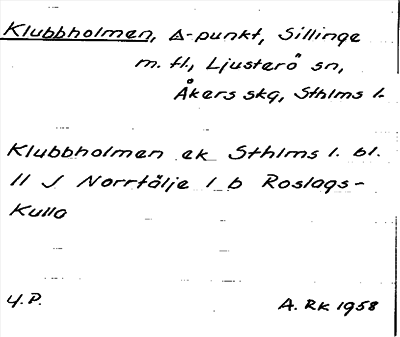 Klubbholmen, Δ-punkt, Sillinge
m. fl., Ljusterö sn,
Åkers skg, Sthlms l.
Klubbholmen ek Sthlms l. bl.
11 J Norrtälje 1 b Roslags-
Kulla
Y.P.
A. RK 1958